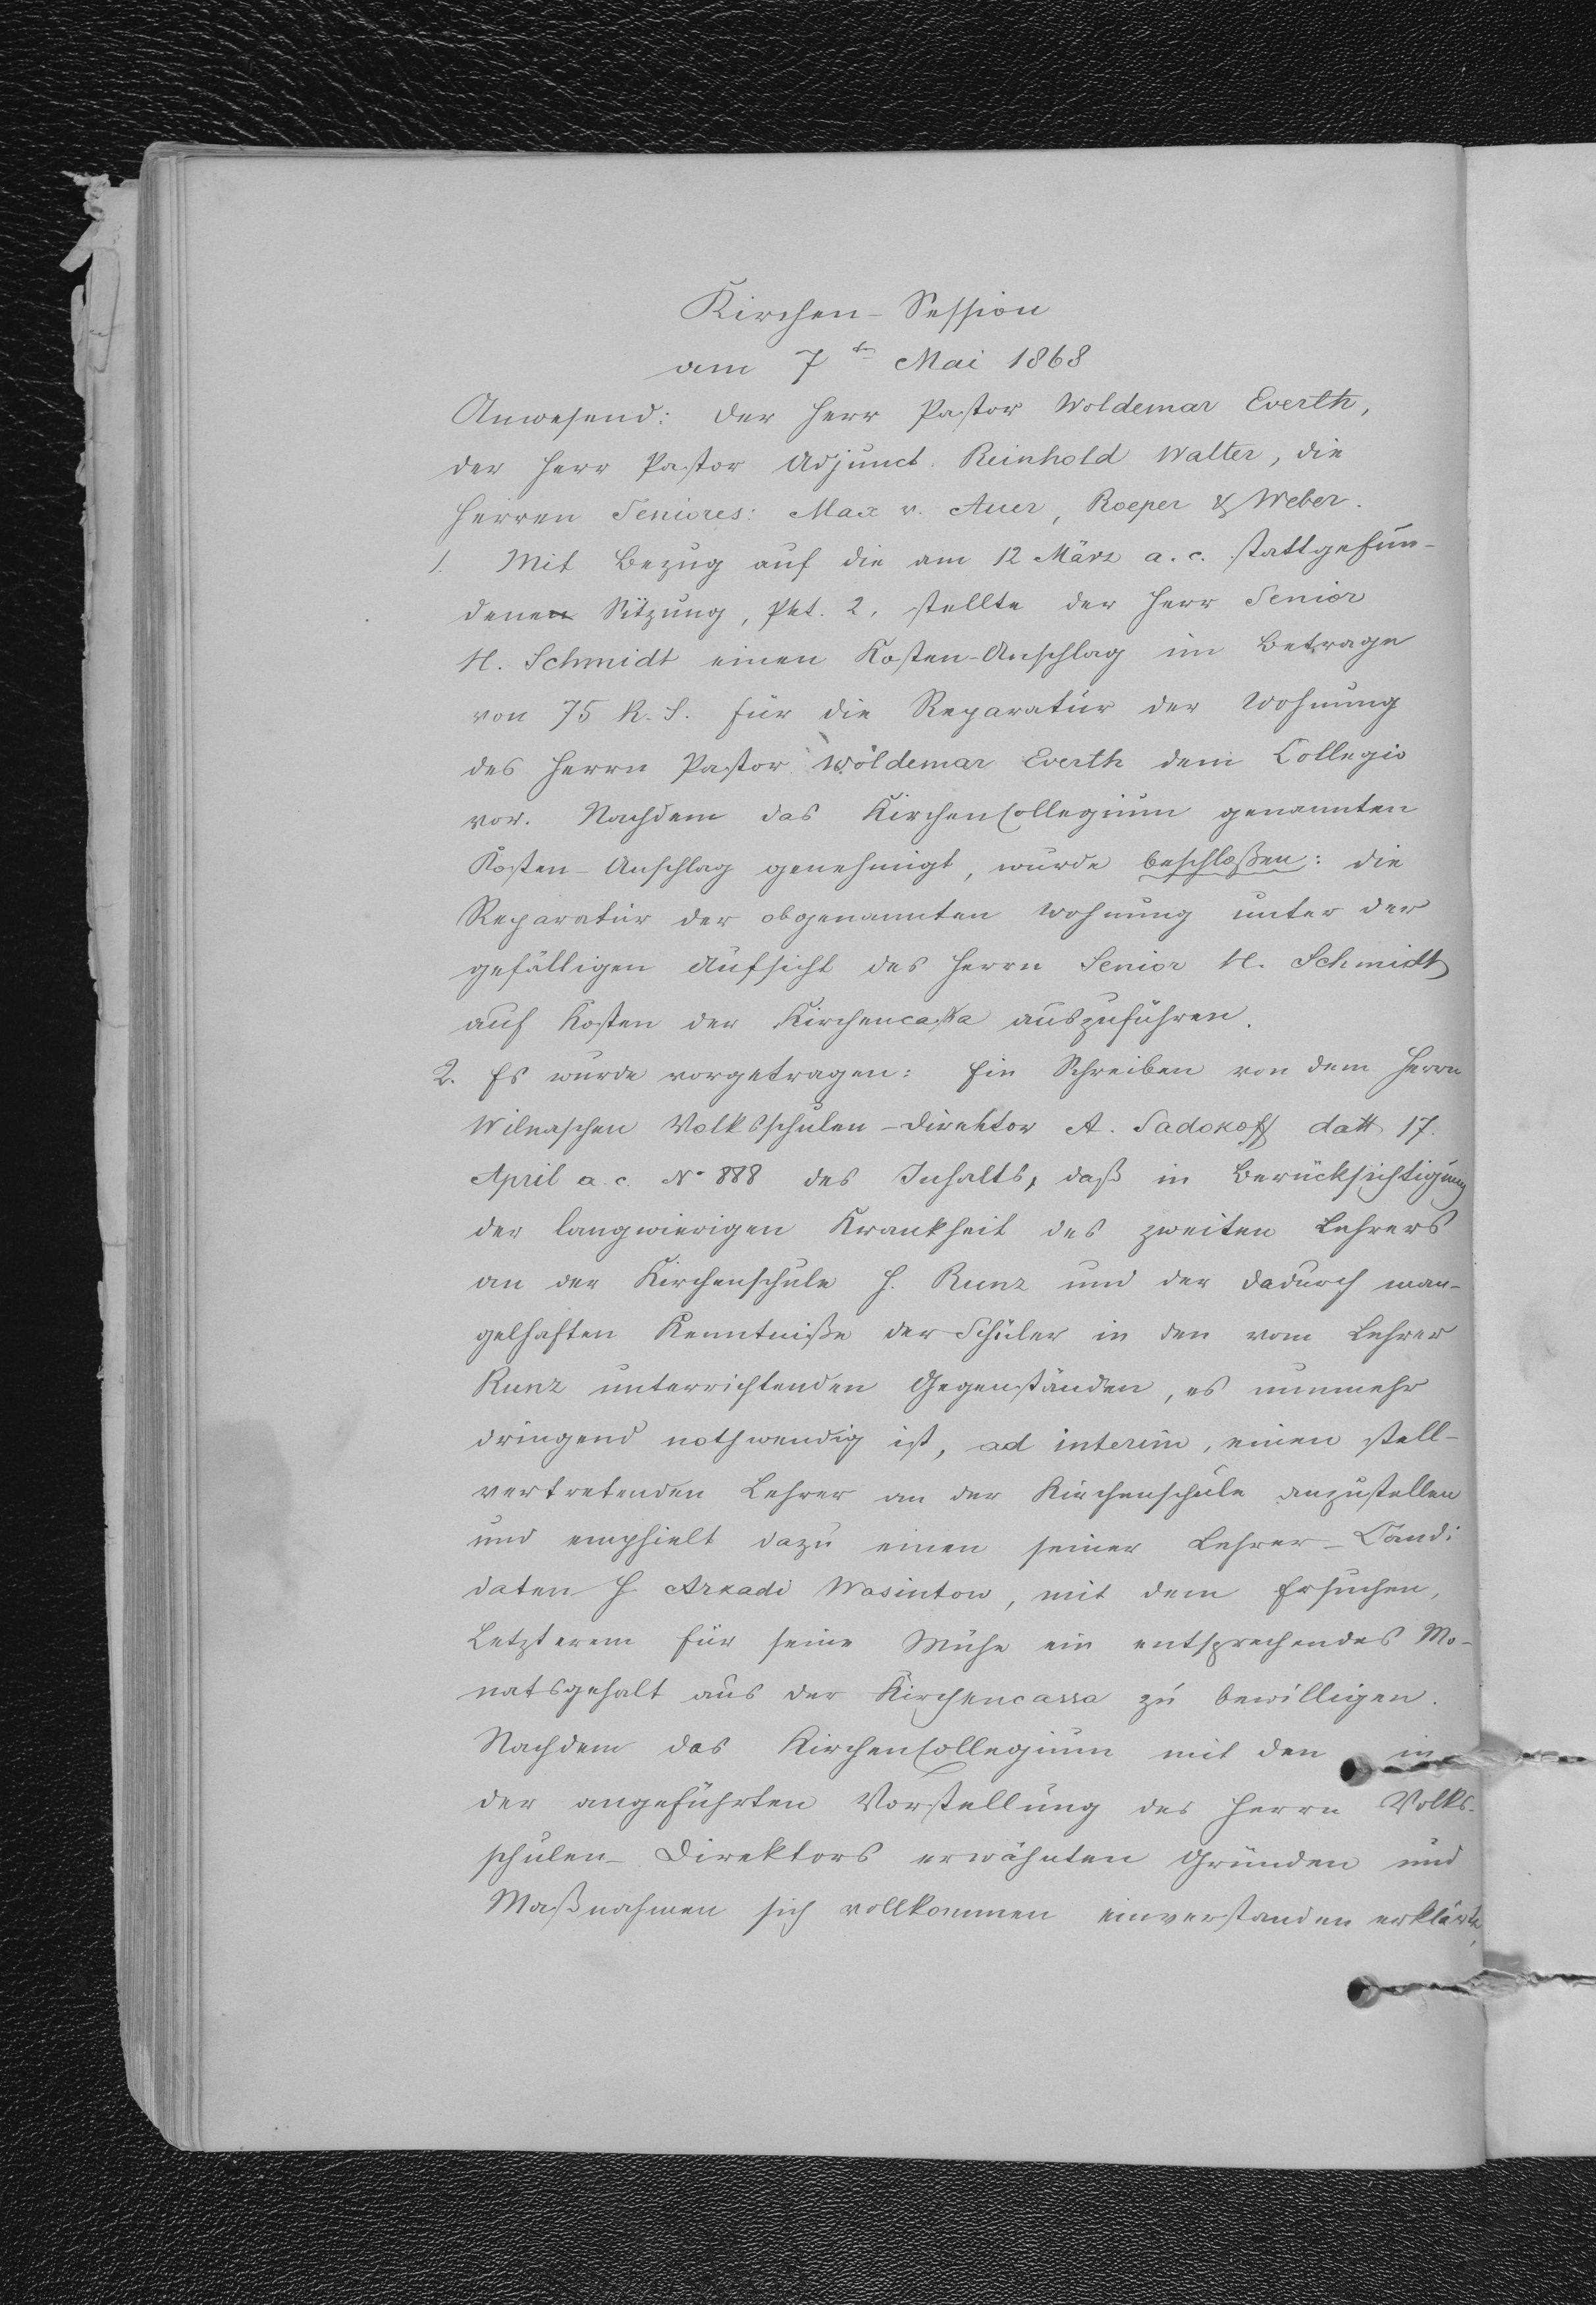 Kirchen-Session
am 7ten Mai 1868
Anwesend: der Herr Pastor Woldemar Everth,
der Herr Pastor Adjunct. Reinhold Walter, die
Herren Seniores: Max v. Auer, Roeper & Weber.
1. Mit Bezug auf die am 12 März a. c. stattgefun-
denen Sitzung, Pkt. 2, stellte der Herr Senior
H. Schmidt einen Kosten-Anschlag im Betrage
von 75 R. S. für die Reparatur der Wohnung
des Herrn Pastor Woldemar Everth dem Collegio
vor. Nachdem das Kirchencollegium genannten
Kosten-Anschlag genehmigt, wurde beschloßen: die
Reparatur der obgenannten Wohnung unter der
gefälligen Aufsicht des Herrn Senior H. Schmidt
auf Kosten der Kirchencassa auszuführen.
2. Es wurde vorgetragen: Ein Schreiben von dem Herrn
Wilnaschen Volksschulen-Direktor A. Sadokoff datt 17.
April a. c. No 888 des Inhalts, daß in Berücksichtigung
der langwierigen Krankheit des zweiten Lehrers
an der Kirchenschule H. Runz und der dadurch man-
gelhaften Kenntniße der Schüler in den vom Lehrer
Runz unterrichtenden Gegenständen, es nunmehr
dringend nothwendig ist, ad interim, einen stell-
vertretenden Lehrer an der Kirchenschule anzustellen
und empfielt dazu einen seiner Lehrer-Candi
daten H Arkadi Wasintow, mit dem Ersuchen,
Letzterem für seine Mühe ein entsprechendes Mo-
natsgehalt aus der Kirchencassa zu bewilligen.
Nachdem das Kirchencollegium mit den in
der angeführten Vorstellung des Herrn Volks-
schulen-Direktors erwähnten Gründen und
Maßnahmen sich vollkommen einverstanden erklärte,